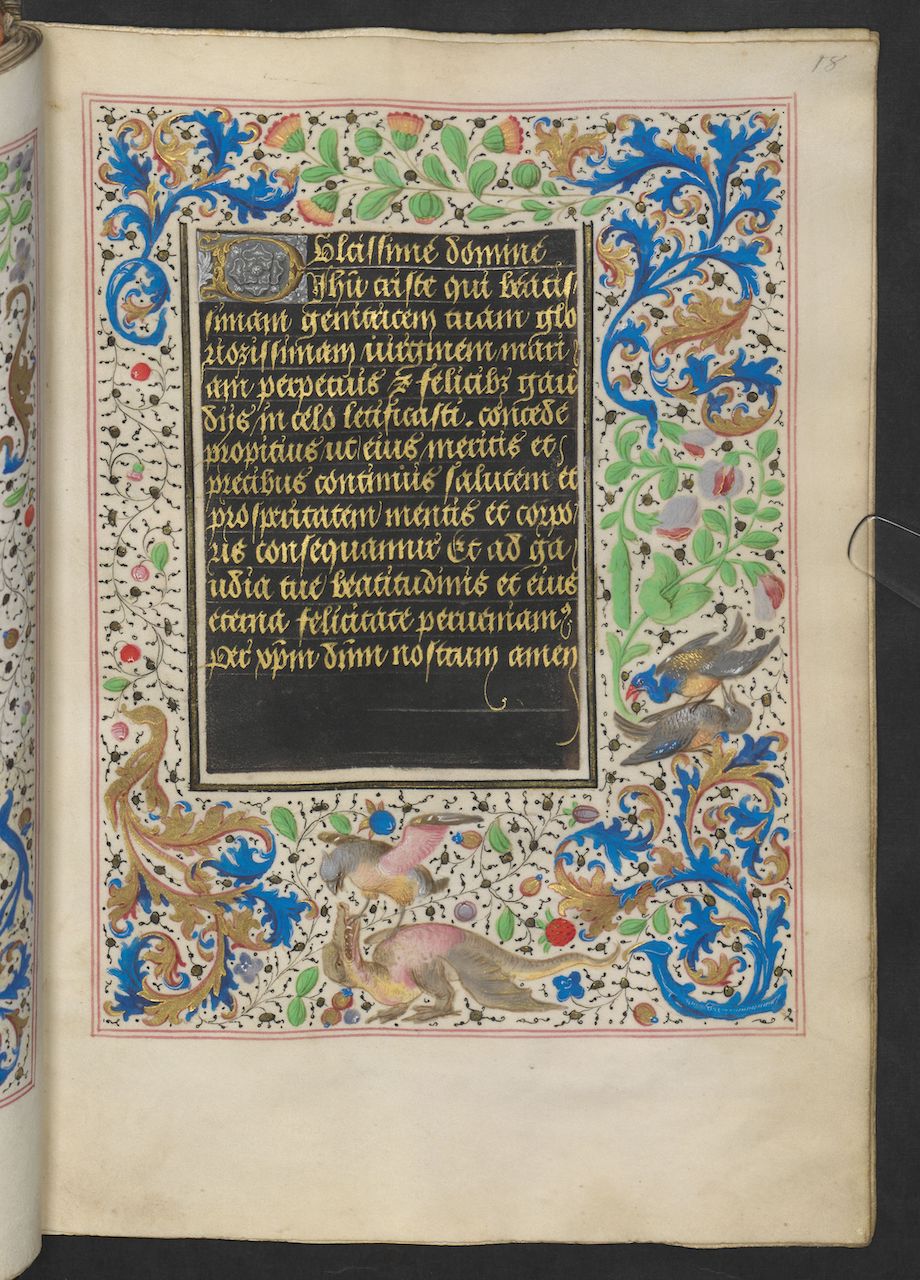 18
Dulcissime domine
Ihu criste qui beatis
simam genitricem tuam glo
riosissimam virginem mari
am perpetuis & felicibz gau
diis in celo letificasti . concede
propitius ut eius meritis et
precibus continuis salutem et
prosperitatem mentis et corpo
ris consequamur Et ad ga
udia tue beatitudinis et eius
eterna felicitate perueniam9
Per xpm dnm nostrum amen